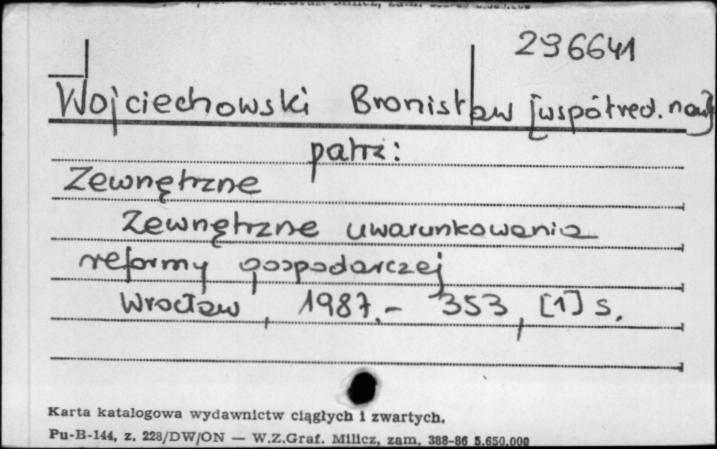 296641
Wojciechowski Bronisław [współred. nauk]
patrz:
Zewnętrzne
Zewnętrzne uwarunkowania
reformy gospodarczej
Wrocław, 1987.- 353, [1] s.
Karta katalogowa wydawnictw ciągłych i zwartych.
Pu-B-144, z. 228/DW/ON — W.Z.Graf. Milicz, zam. 388-86 5.650.000